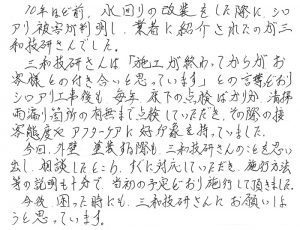 10年ほど前、水回りの改装をした際に、シロ
アリ被害が判明し、業者に紹介されたのが三
和技研さんでした。
三和技研さんは「施工が終わってからがお
客様との付き合いと思っています」との言葉どおり
シロアリ工事後も毎年床下の点検ばかりか、清掃
雨漏り箇所の有無まで点検していただき、その際の接
客態度やアフターケアに好印象を持っていました。
今回、外壁塗装の際も、三和技研さんのことを思い
出し、相談したところ、すぐに対応していただき、施行方法
等の説明も十分で、当初の予定どおり施行して頂きました。
今後、困った時にも、三和技研さんにお願いしよ
うと思っています。